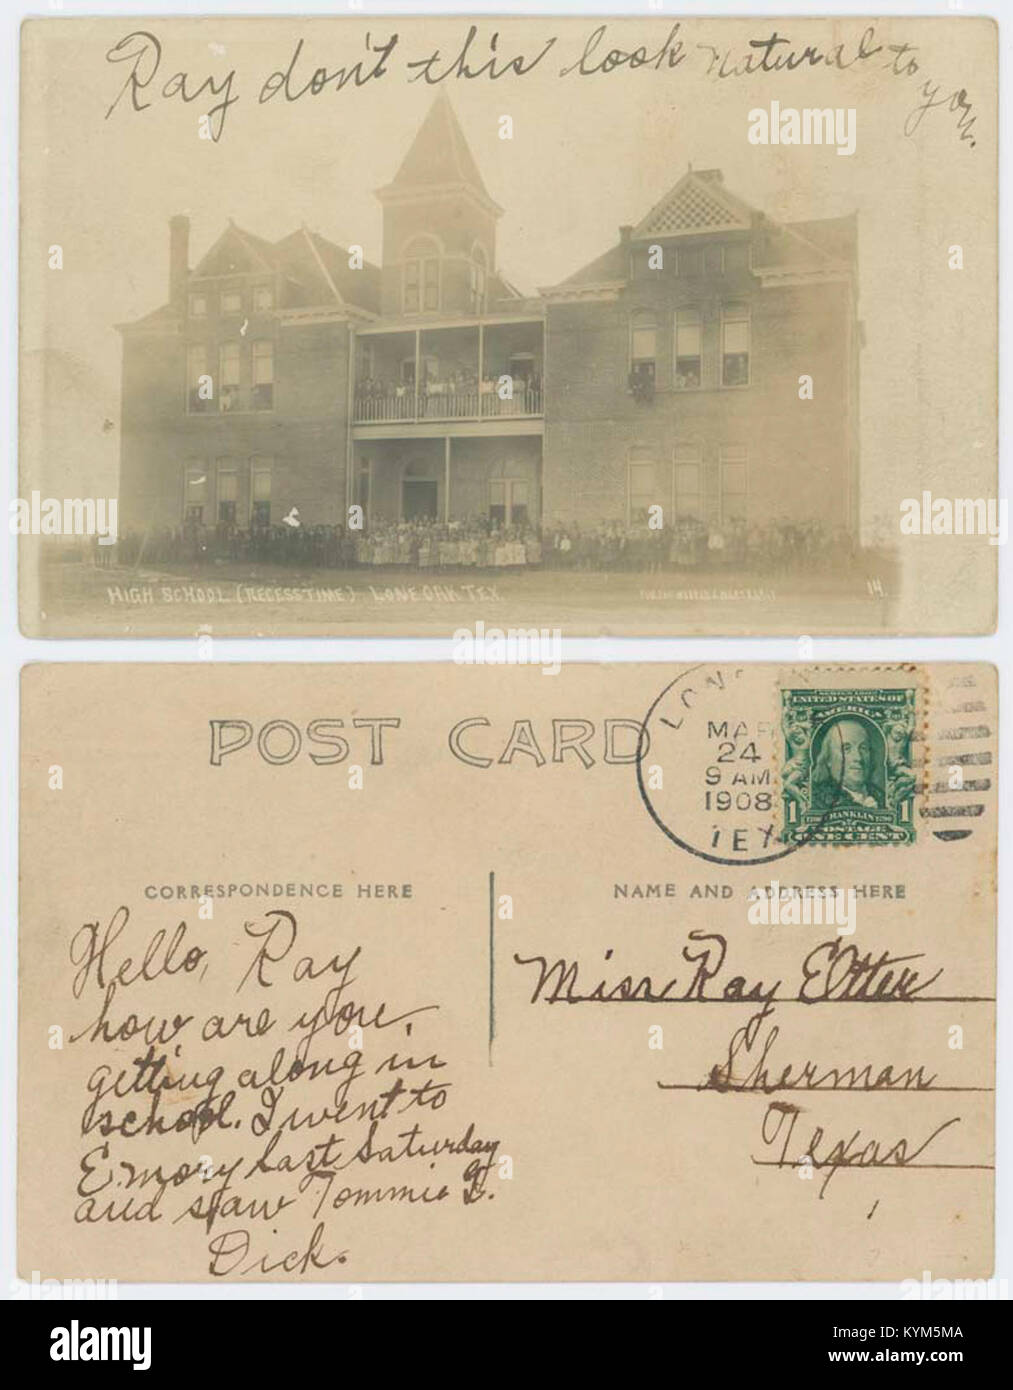 Ray don't this look natural to you.
HIGH SCHOOL (RECESS TIME) LONE OAK TEX.
14.
POST CARD
LONE
MAR
24
9 AM
1908
TEX
SERIES 1902
UNITED STATES OF
AMERICA
1 FRANKLIN 1
POSTAGE
ONE CENT
CORRESPONDENCE HERE
NAME AND ADDRESS HERE
Hello, Ray
how are you,
getting along in
school. I went to
Emory last Saturday
and saw Tommie L.
Dick.
Miss Ray Etter
Sherman
Texas
alamy
Image ID: KYM5MA
www.alamy.com